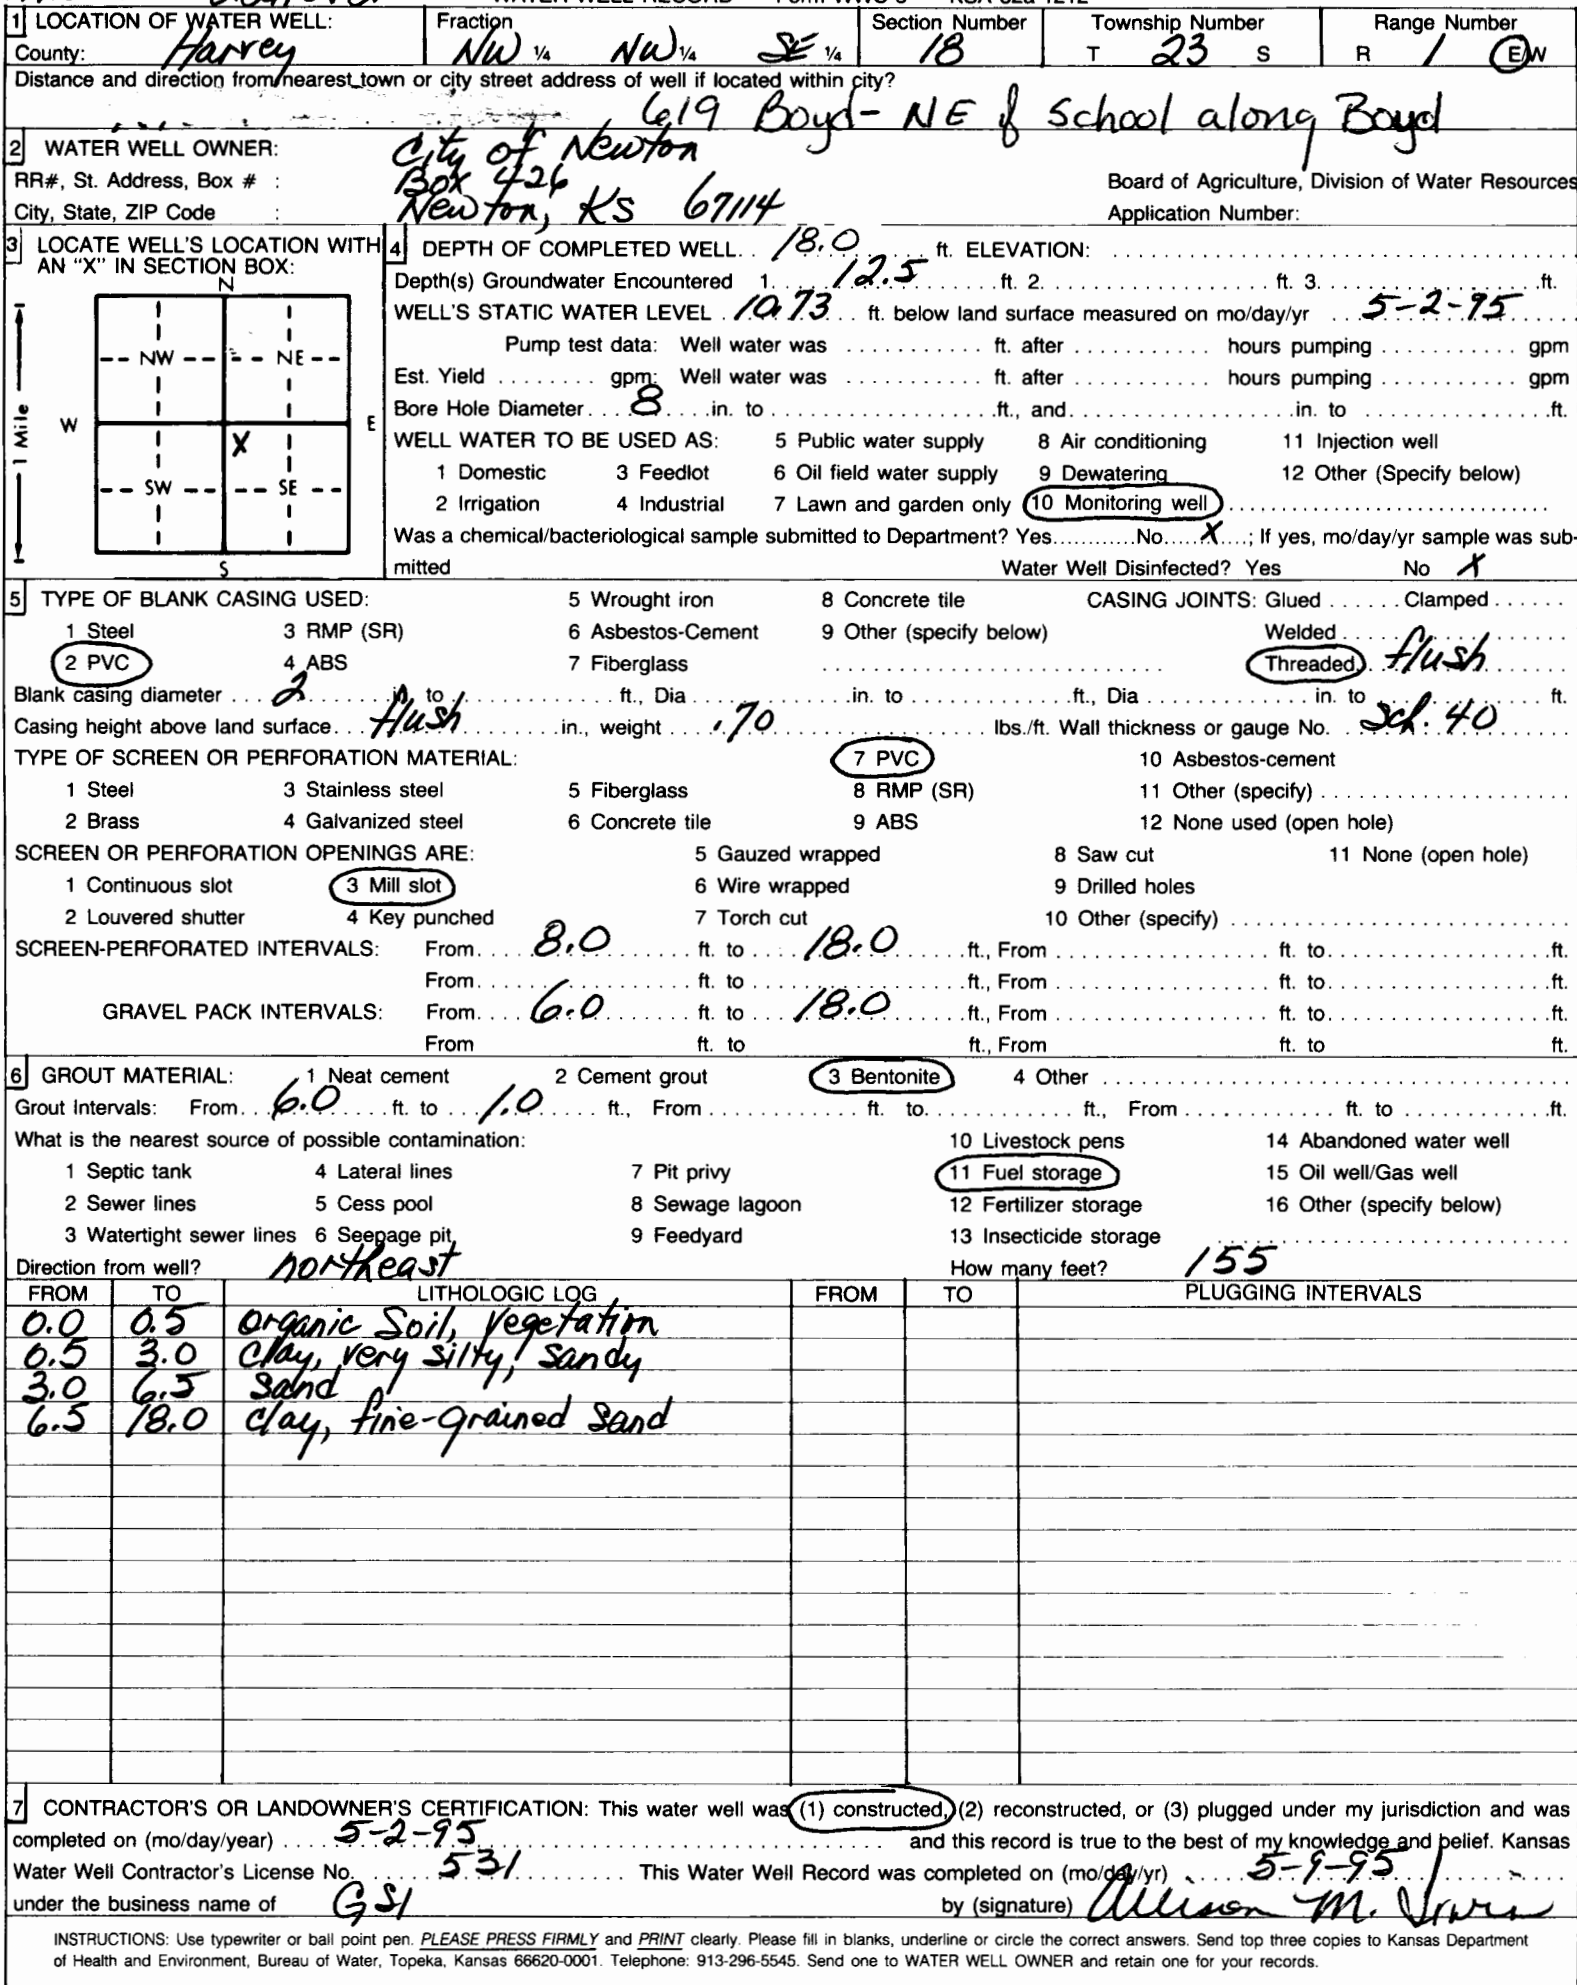 WATER WELL RECORD Form WWC-5 KSA 82a-1212
1 LOCATION OF WATER WELL: Fraction Section Number Township Number Range Number
County: Harvey NW ¼ NW ¼ SE ¼ 18 T 23 S R 1 E/W
Distance and direction from nearest town or city street address of well if located within city?
619 Boyd - NE of School along Boyd
2 WATER WELL OWNER: City of Newton
RR#, St. Address, Box # : Box 426 Board of Agriculture, Division of Water Resources
City, State, ZIP Code : Newton, KS 67114 Application Number:
3 LOCATE WELL'S LOCATION WITH AN "X" IN SECTION BOX:
N
NW NE
W E
X
SW SE
S
1 Mile
4 DEPTH OF COMPLETED WELL. . 18.0 ft. ELEVATION:
Depth(s) Groundwater Encountered 1. 12.5 ft. 2. ft. 3. ft.
WELL'S STATIC WATER LEVEL . 10.73 ft. below land surface measured on mo/day/yr 5-2-95
Pump test data: Well water was ft. after hours pumping gpm
Est. Yield gpm: Well water was ft. after hours pumping gpm
Bore Hole Diameter 8 in. to ft., and in. to ft.
WELL WATER TO BE USED AS: 5 Public water supply 8 Air conditioning 11 Injection well
1 Domestic 3 Feedlot 6 Oil field water supply 9 Dewatering 12 Other (Specify below)
2 Irrigation 4 Industrial 7 Lawn and garden only 10 Monitoring well
Was a chemical/bacteriological sample submitted to Department? Yes No X ; If yes, mo/day/yr sample was sub-
mitted Water Well Disinfected? Yes No X
5 TYPE OF BLANK CASING USED: 5 Wrought iron 8 Concrete tile CASING JOINTS: Glued Clamped
1 Steel 3 RMP (SR) 6 Asbestos-Cement 9 Other (specify below) Welded
2 PVC 4 ABS 7 Fiberglass Threaded flush
Blank casing diameter 2 in. to ft., Dia in. to ft., Dia in. to ft.
Casing height above land surface flush in., weight .70 lbs./ft. Wall thickness or gauge No. Sch. 40
TYPE OF SCREEN OR PERFORATION MATERIAL: 7 PVC 10 Asbestos-cement
1 Steel 3 Stainless steel 5 Fiberglass 8 RMP (SR) 11 Other (specify)
2 Brass 4 Galvanized steel 6 Concrete tile 9 ABS 12 None used (open hole)
SCREEN OR PERFORATION OPENINGS ARE: 5 Gauzed wrapped 8 Saw cut 11 None (open hole)
1 Continuous slot 3 Mill slot 6 Wire wrapped 9 Drilled holes
2 Louvered shutter 4 Key punched 7 Torch cut 10 Other (specify)
SCREEN-PERFORATED INTERVALS: From 8.0 ft. to 18.0 ft., From ft. to ft.
From ft. to ft., From ft. to ft.
GRAVEL PACK INTERVALS: From 6.0 ft. to 18.0 ft., From ft. to ft.
From ft. to ft., From ft. to ft.
6 GROUT MATERIAL: 1 Neat cement 2 Cement grout 3 Bentonite 4 Other
Grout Intervals: From 6.0 ft. to 1.0 ft., From ft. to ft., From ft. to ft.
What is the nearest source of possible contamination: 10 Livestock pens 14 Abandoned water well
1 Septic tank 4 Lateral lines 7 Pit privy 11 Fuel storage 15 Oil well/Gas well
2 Sewer lines 5 Cess pool 8 Sewage lagoon 12 Fertilizer storage 16 Other (specify below)
3 Watertight sewer lines 6 Seepage pit 9 Feedyard 13 Insecticide storage
Direction from well? northeast How many feet? 155
FROM TO LITHOLOGIC LOG FROM TO PLUGGING INTERVALS
0.0 0.5 Organic Soil, Vegetation
0.5 3.0 Clay, very silty, sandy
3.0 6.5 Sand
6.5 18.0 Clay, fine-grained Sand
7 CONTRACTOR'S OR LANDOWNER'S CERTIFICATION: This water well was (1) constructed, (2) reconstructed, or (3) plugged under my jurisdiction and was
completed on (mo/day/year) 5-2-95 and this record is true to the best of my knowledge and belief. Kansas
Water Well Contractor's License No. 531 This Water Well Record was completed on (mo/day/yr) 5-9-95
under the business name of GSI by (signature) Allison M. Irwin
INSTRUCTIONS: Use typewriter or ball point pen. PLEASE PRESS FIRMLY and PRINT clearly. Please fill in blanks, underline or circle the correct answers. Send top three copies to Kansas Department
of Health and Environment, Bureau of Water, Topeka, Kansas 66620-0001. Telephone: 913-296-5545. Send one to WATER WELL OWNER and retain one for your records.